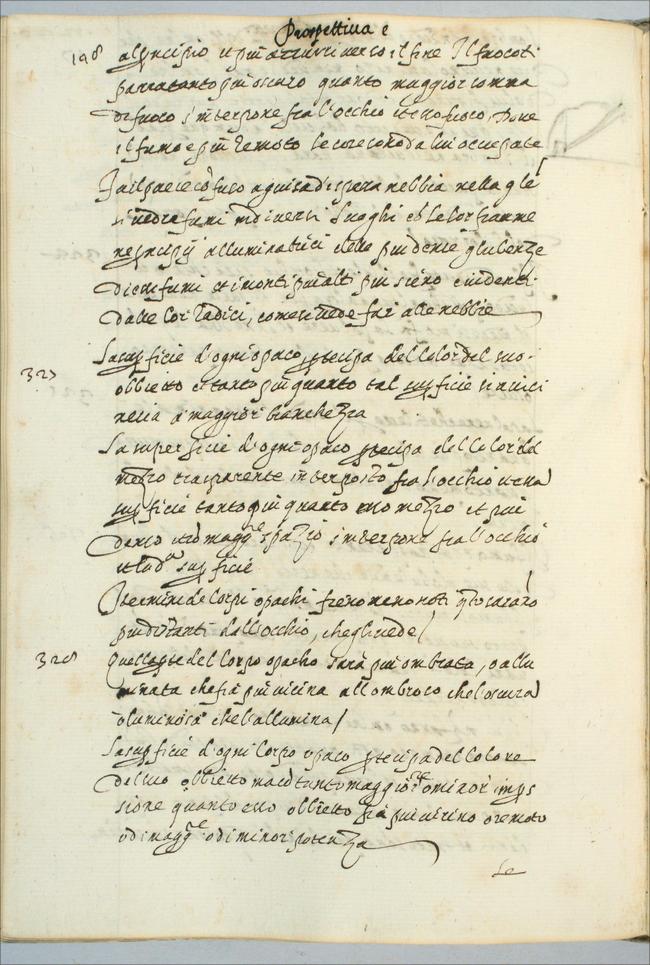 Prospettiva e
198
al principio et piu verso il fine Il fuoco ti
parra tanto piu oscuro quanto maggior somma
di fuoco s'interpone fra l'occhio et
il fumo e piu remoto le cose da lui occupate
Fa il paese nebbia nella qle
fumi in diversi luoghi
alluminatrici delle piu dense
di fumi et i monti piu alti piu sieno evidenti
dalle lor radici, come si vede far alle nebbie
327
La supficie d'ogni opaco ptecipa del color del suo
obbietto e tanto piu quanto tal supficie s'avici
nera a maggior bianchezza
La superficie d'ogni opaco ptecipa del color del
mezzo trasparente interposto fra l'occhio et essa
supficie tanto piu quanto esso mezzo et piu
denso et maggre spazio s'interpone fra l'occhio
et la da supficie
I termini de corpi opachi fieno meno noti qto saranno
piu distanti dall'occhio, che gli vede /
328
Quella pte del corpo opacho sara piu ombrata, o allu
minata che fia piu vicina all ombroso che l'oscura
o luminoso che l'allumina /
La supficie d'ogni corpo opaco ptecipa del colore
del suo obbietto ma co tanto maggiore o minor imps
sione quanto esso obbietto fia piu vicino o remoto
o di maggre o di minor potenza
Se